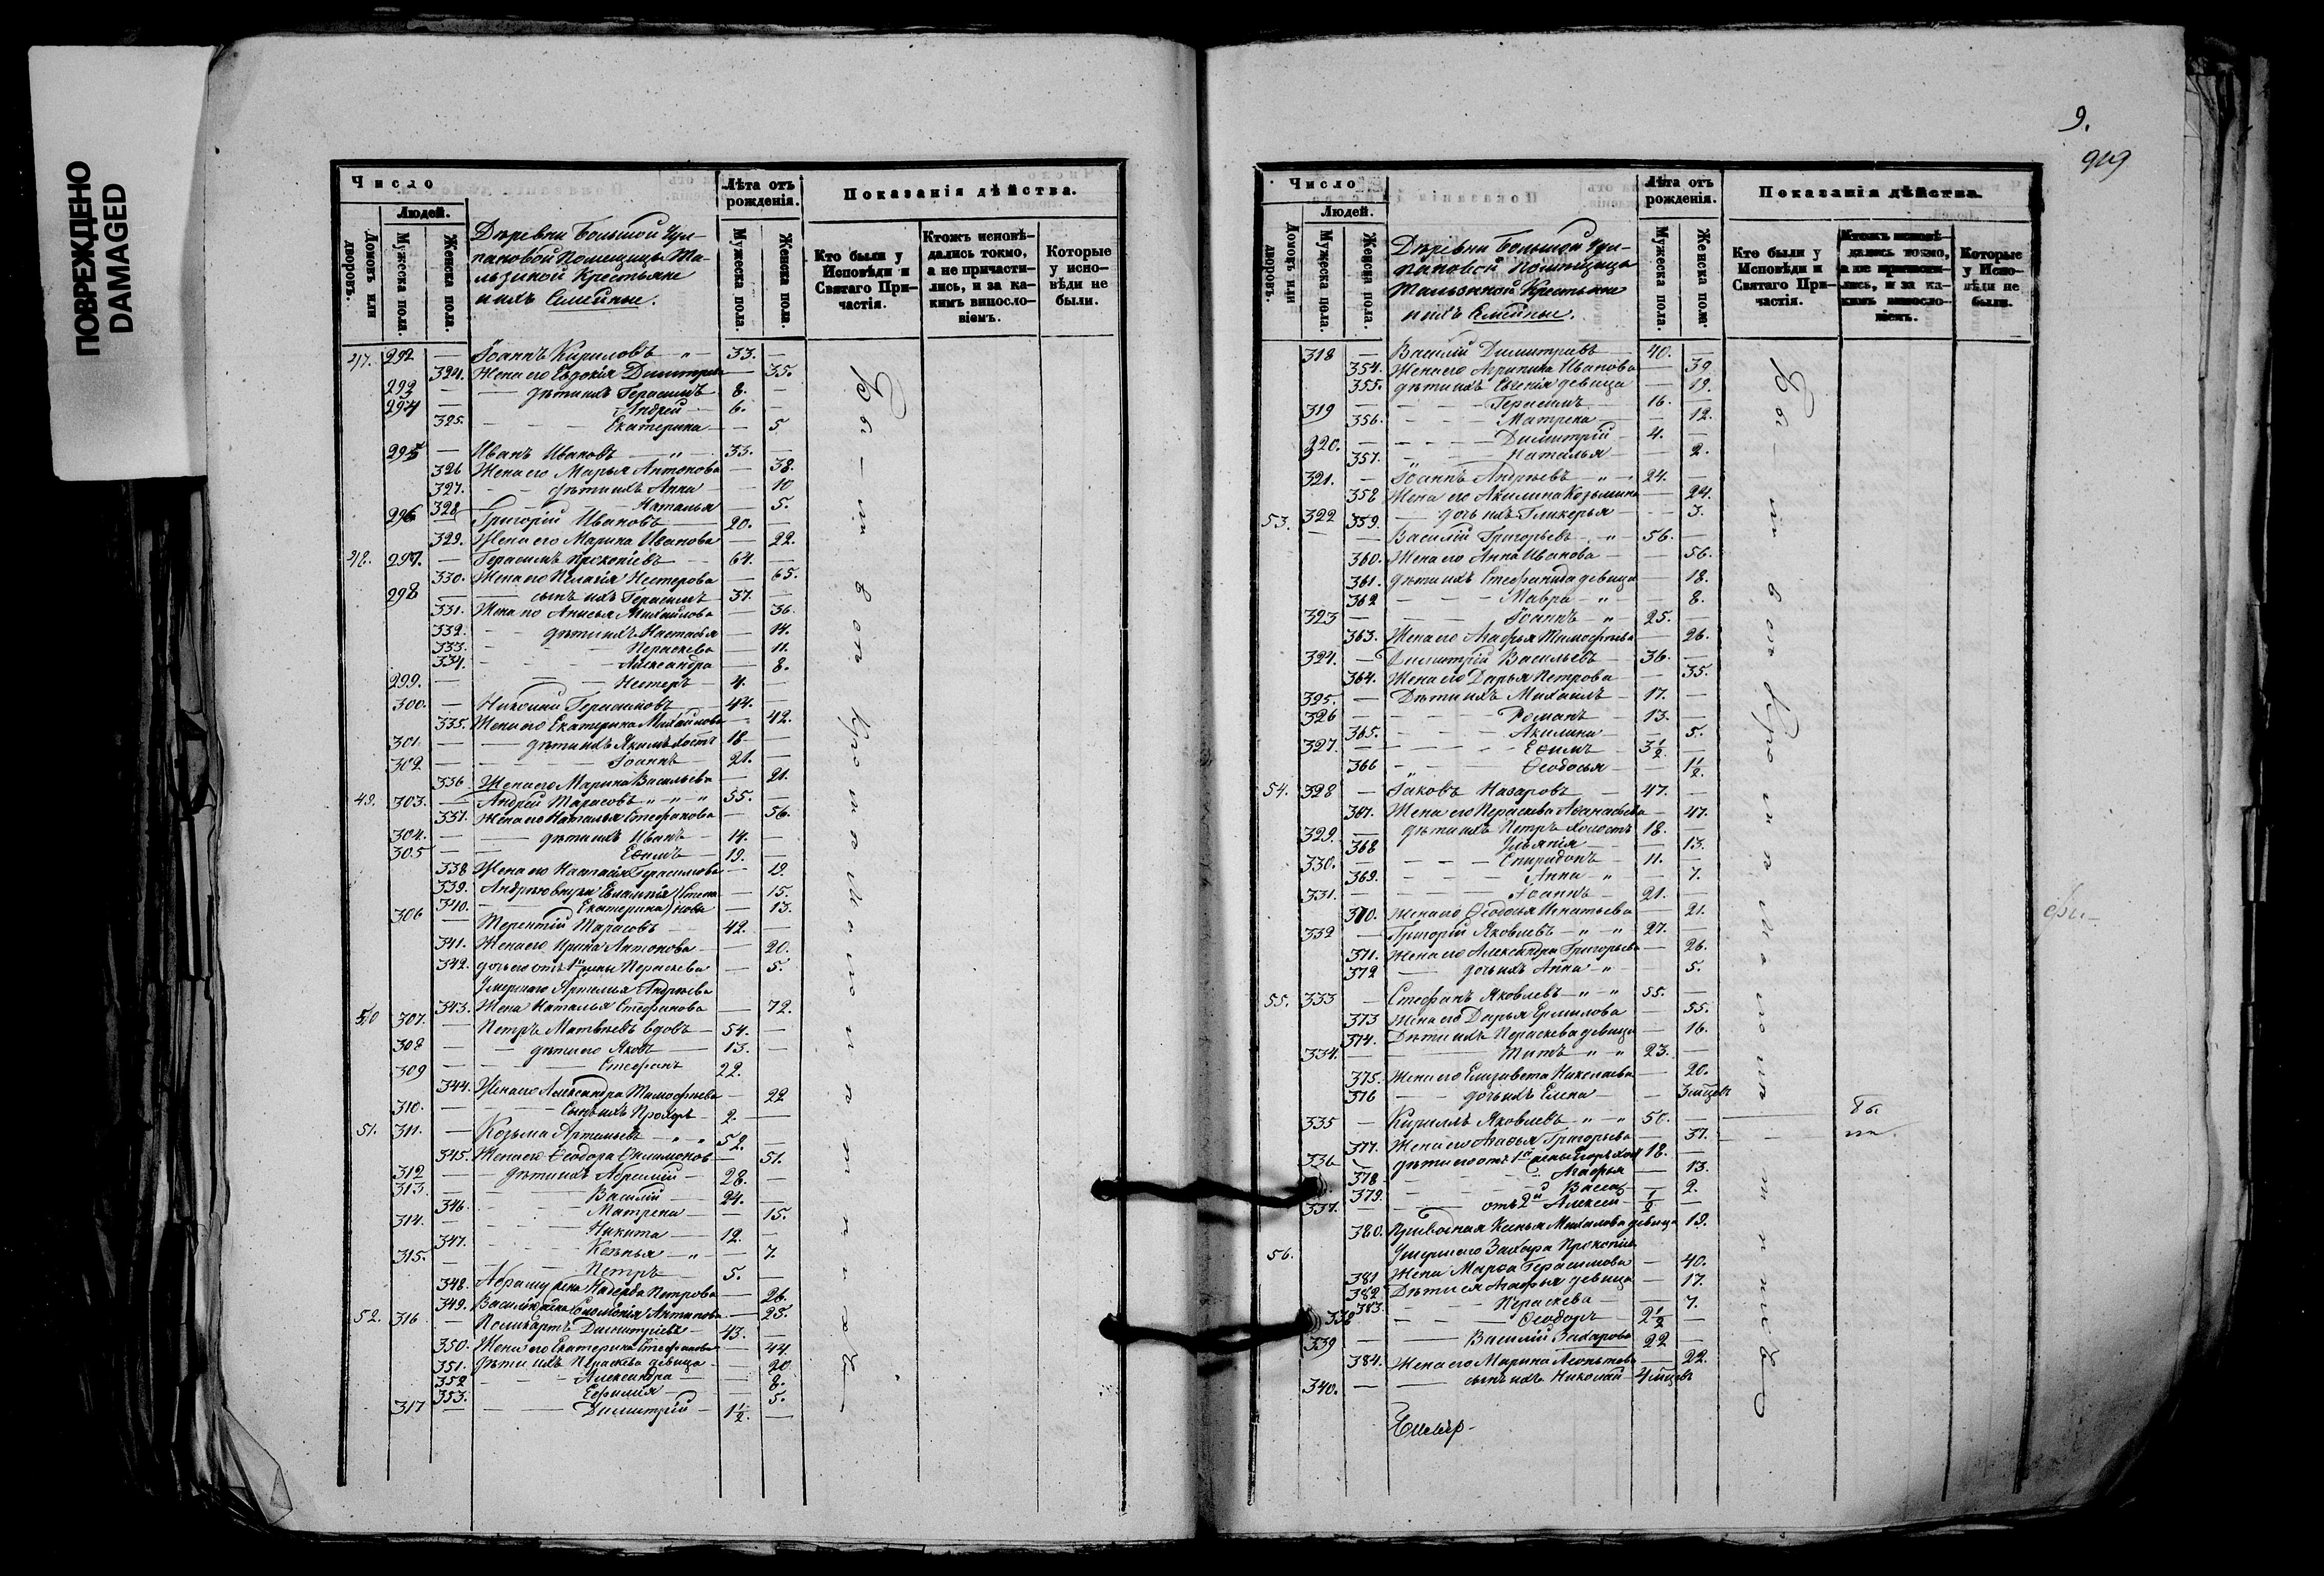 ПОВРЕЖДЕНО
DAMAGED
Число
Людей.
Домовъ или дворовъ.
Мужеска пола.
Женска пола.
Деревни Большой
Помещицы
Крестьяне
и ихъ Семейные.
Лѣта отъ рожденія.
Мужеска пола.
Женска пола.
Показанія дѣйства.
Кто были у Исповѣди и Святаго Причастія.
Ктожъ исповѣдались токмо, а не причастились, и за какимъ винословіемъ.
Которые у исповѣди не были.
47. 292 — Іоаннъ Кириловъ „ — 33. —
324. Жена его Евдокія Димитріева — 35.
293 — — дѣти ихъ Герасимъ 8. —
294 — Андрей — 6. —
325. — — Екатерина — — 5
295 — Иванъ Ивановъ — „ — 33. —
326 Жена его Марья Антонова — 38.
327. — — дѣти ихъ Анна — 10
328 — — Наталья — 5.
296 — Григорій Ивановъ — 20. —
329. Жена его Марина Иванова — 22.
48. 297. — Герасимъ Прокопіевъ — 64. —
330. Жена его Пелагія Нестерова — 65.
298 — — сынъ ихъ Герасимъ — 37. —
331. Жена его Анисья Михайлова — 36.
332. — — дѣти ихъ Настасья — 14.
333. — — Пераскева — 11.
334. — — Александра — 8.
299. — — — Нестеръ — 4. —
300. — Николай Герасимовъ — 44. —
335. Жена его Екатерина Михайлова — 42.
301. — — дѣти ихъ Якимъ холостъ 18 —
302 — — Іоаннъ — 21. —
336 Жена его Марина Васильева — 21.
49. 303. — Андрей Тарасовъ „ — „ — „ 55. —
337. Жена его Наталья Стефанова — 56.
304. — — дѣти ихъ Иванъ — 14. —
305 — — Ефимъ — 19. —
338 Жена его Настасія Герасимова — 19.
339. Андреевы внуки — 15.
340. — Екатерина — 13.
306 — Терентій Тарасовъ — 42. —
341. Жена его Ирина Антонова — — 20.
342. дочь его отъ 1й жены Пераскева — 5.
Умершаго Артемья Андреева
343. Жена Наталья Стефанова — 72.
50 307. — Петръ Матвѣевъ вдовъ — 54. —
308 — — дѣти его Яковъ — 13. —
309 — — Стефанъ 22.
344. Жена его Александра Тимофѣева — 22
310. — — Сынъ ихъ Прохоръ — 2. —
51. 311. — Козьма Артемьевъ — „ „ 52. —
345. Жена его Ѳеодора — 51.
312 — — дѣти ихъ — 28. —
313. — — Василій — 24. —
346. — — Матрена — — 15.
314. — — Никита — 12. —
347. — — Ксенья — „ — 7.
315. — — Петръ — 5. —
348. Абраму жена Надежда Петрова — 26.
349. Василья жена Соломонія Антипова — 23.
52. 316 — Поликарпъ Димитріевъ 43. —
350. Жена его Екатерина Стефанова — 44.
351. дѣти ихъ Пераскева девица — 20.
352 — — Александра — 8.
353. — — — 5.
317 — — — Димитрій — 1½. —
9.
949
Число
Людей.
Домовъ или дворовъ.
Мужеска пола.
Женска пола.
Деревни Большой
Помещицы
Крестьяне
и ихъ Семейные.
Лѣта отъ рожденія.
Мужеска пола.
Женска пола.
Показанія дѣйства.
Кто были у Исповѣди и Святаго Причастія.
Ктожъ исповѣдались токмо, а не причастились, и за какимъ винословіемъ.
Которые у Исповѣди не были.
318 — Василій Димитріевъ 40. —
354. Жена его Агрипина Иванова — 39.
355. дѣти ихъ девица — 19.
319 — — Герасимъ — 16. —
356. — — Матрена — — 12.
320. — — Димитрій — 4. —
357. — — Наталья — — 2.
321. — Іоаннъ Андреевъ — „ — 24. —
358 Жена его Акилина Козьмина — 24.
359. — дочь ихъ Гликерья — — 3.
53. 322 — Василій Григорьевъ — „ — 56. —
360. Жена его Анна Иванова — — 56.
361. дѣти ихъ Стефанида девица — 18.
362 — — Мавра — „ — 8.
323 — — Іоаннъ — „ 25. —
363. Жена его Агафья Тимофѣева — 26.
324. — Димитрій Васильевъ — 36. —
364. Жена его Дарья Петрова — — 35.
325. — Дѣти ихъ Михаилъ — 17. —
326 — — Романъ — 13. —
365. — — Акилина — — 5.
327. — — Ефимъ — 3½ —
366 — — Ѳеодосья — — 1½.
54. 328 — Іаковъ Назаровъ — 47. —
367. Жена его Пераскева Аѳанасьева — 47.
329. — дѣти ихъ Петръ холостъ 18. —
368 Ульянія — — 13.
330. — — Спиридонъ — 11. —
369. — — Анна — „ — 7.
331. — — Іоаннъ — 21. —
370. Жена его Ѳеодосья Игнатьева — 21.
332 — Григорій Яковлевъ — „ — „ 27. —
371. Жена его Александра Григорьева — 26.
372 — дочь ихъ Анна — „ — 5.
55. 333 — Стефанъ Яковлевъ — „ — „ 55. —
373 Жена его Дарья Ермилова — 55.
374. Дѣти ихъ Пераскева девица — 16.
334. — — Титъ „ „ 23. —
375. Жена его Елизавета Николаева — 20.
376 — дочь ихъ Елена — — 3 мѣсяца
335 — Кириллъ Яковлевъ — „ — „ 50. — Бы
377. Жена его Агафья Григорьева — 37. — тъ.
336 — дѣти его отъ 1й жены 18. —
378 — — Агафья — 13.
379. — — — 2.
337. — — отъ 2й Алексей — ½ —
380. Приводная Ксенья Михайлова девица 19.
56. Умершаго Захара Прокопіева
381 Жена Марѳа Герасимова — 40.
382 Дѣти ея Агафья девица — 17.
383. — — Пераскева — — 7.
338 — — Ѳеодоръ — 2½ —
339 — — Василій Захаровъ 22 —
384. Жена его Марина Леонтьева — 22.
340. — — сынъ ихъ Николай — 4 мѣсяца